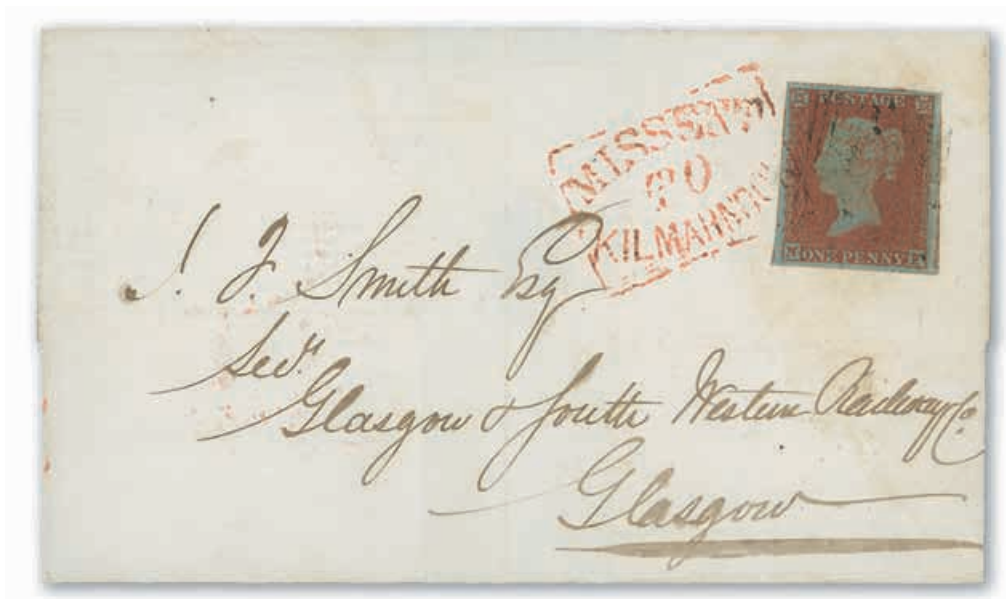 MISSENT
TO
KILMARNOCK
POSTAGE
M ONE PENNY A
J. F. Smith Esq
Secy.
Glasgow & South Western Railway Co.
Glasgow